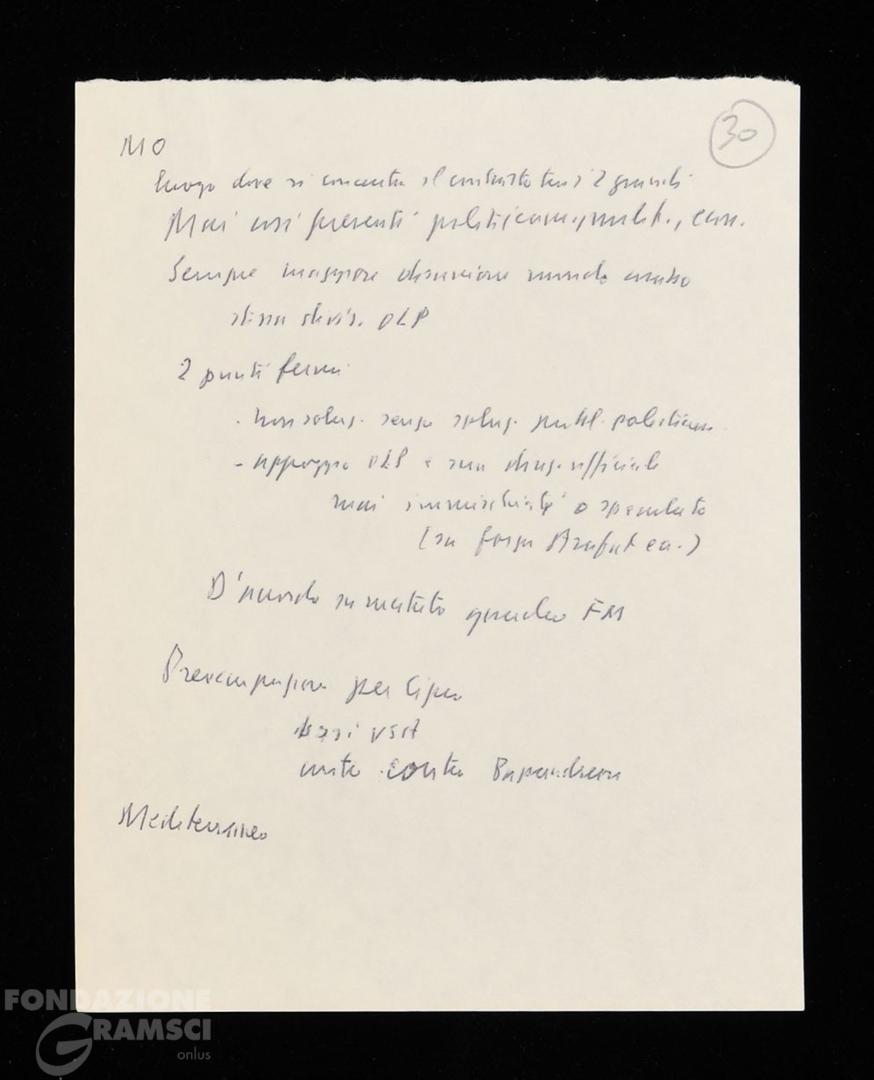 30
MO
luogo dove si concentra il contrasto tra i 2 grandi
Mai così presenti politicam., milit., econ.
Sempre maggiore disunione mondo arabo
stessa divis. OLP
2 punti fermi
. non soluz. senza soluz. probl. palestinese
- appoggio OLP e sua direz. ufficiale
mai immischiati o speculato
(su forza Arafat ecc.)
D'accordo su quadro FM
Preoccupazione per Cipro
basi USA
unite contro Papandreou
Mediterraneo
FONDAZIONE
GRAMSCI
onlus